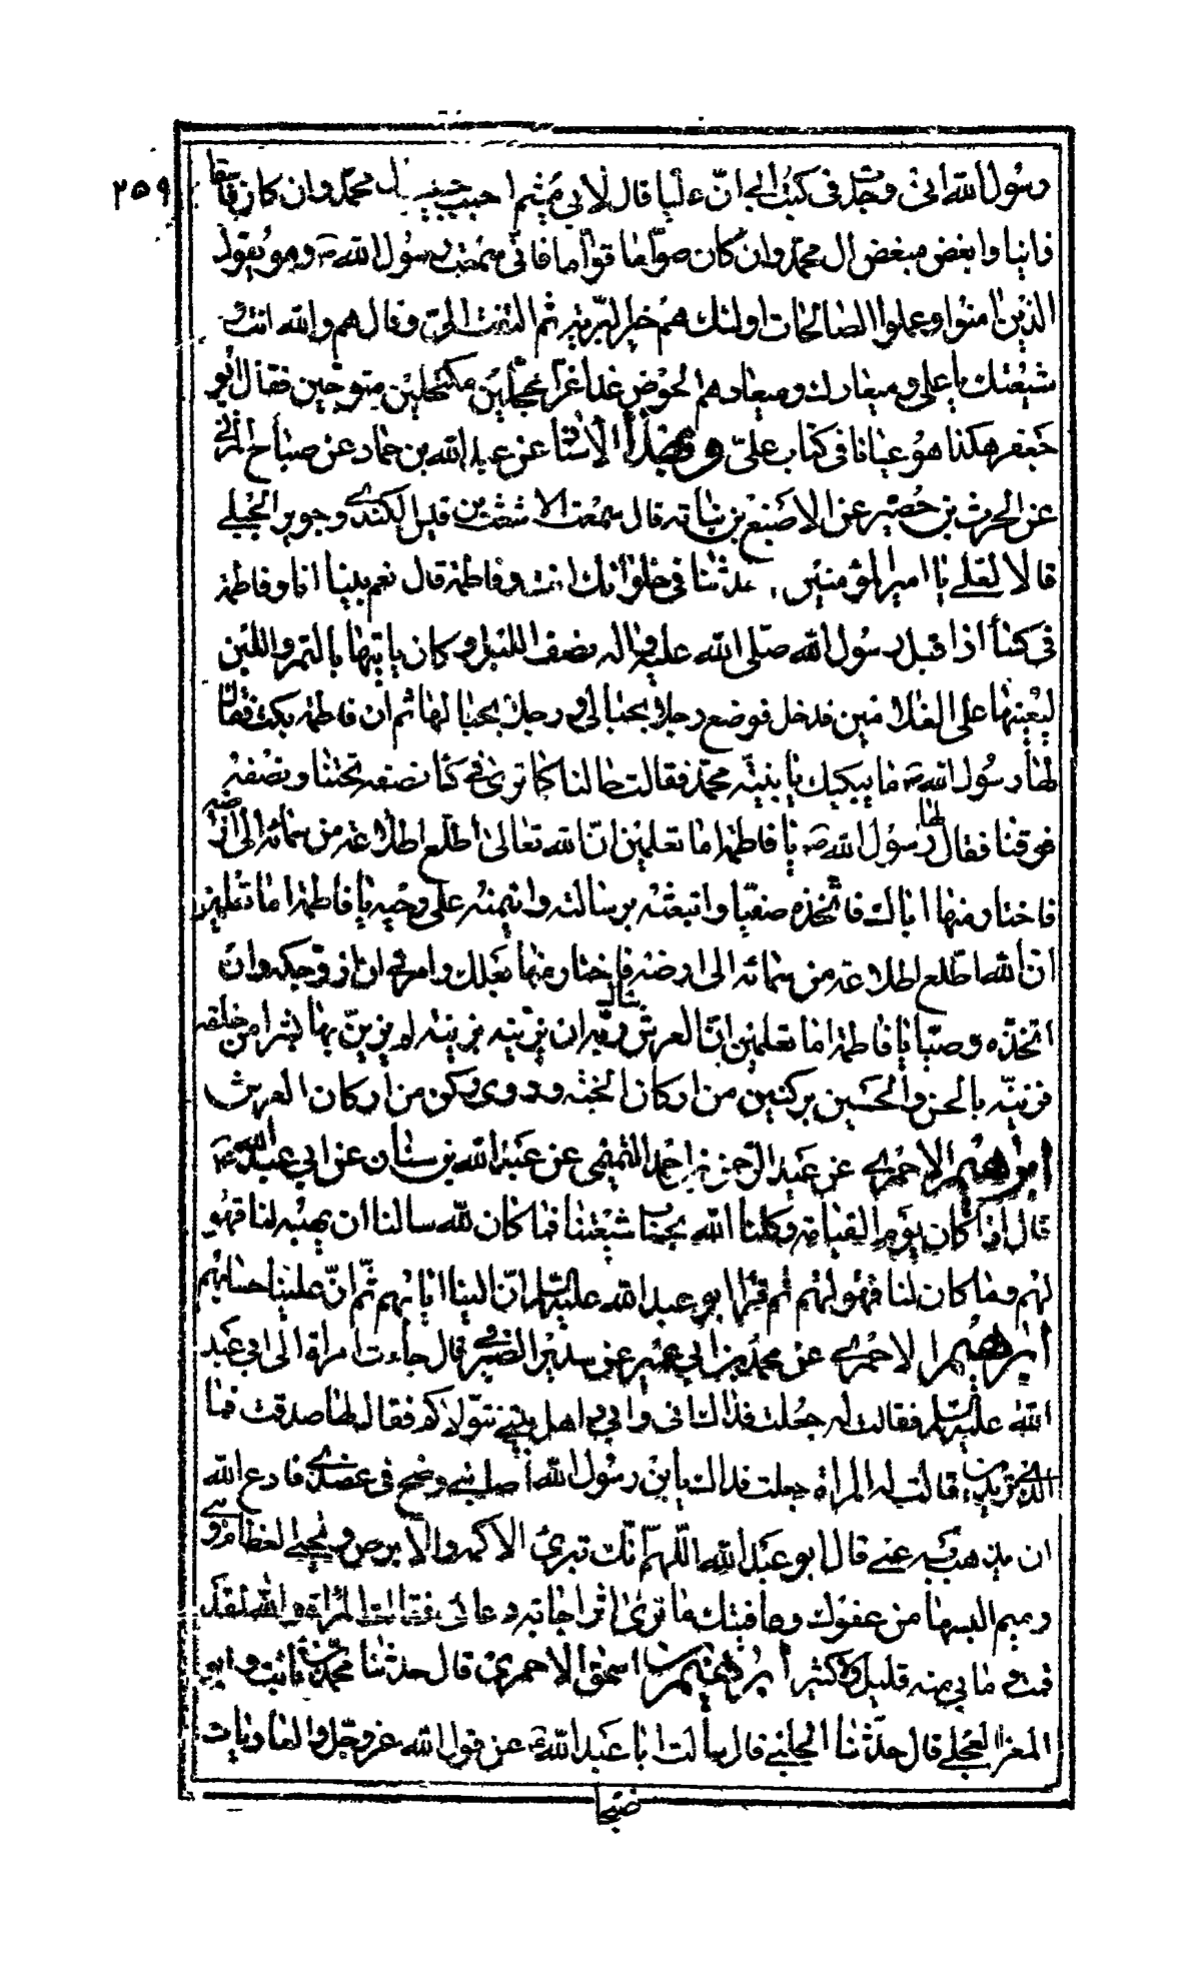 ٢٥٩
رسول الله انى وجدت فى كتب ابى انّ عليا قال لابي ميثم احبب حبيب ال محمّد وان كان فاسقا
زانيا وابغض مبغض ال محمّد وان كان صوّاما قوّاما فانّى سمعت رسول الله ص وهو يقول
الذين امنوا وعملوا الصالحات اولئك هم خير البريّة ثم التفت الىّ وقال هم والله انت و
شيعتك يا على وميعادك وميعادهم الحوض غدا غرّا محجّلين مكتحلين متوّجين فقال ابو
جعفر هكذا هو عيانا فى كتاب علىّ وبهذا الاسناد عن عبد الله بن حماد عن صباح المزنى
عن الحرث بن حصيره عن الاصبغ بن نباته قال سمعت الاشعث بن قيس الكندى وجوير الجبلى
قالا لعلى يا امير المؤمنين حدثنا فى خلواتك انت وفاطمة قال نعم بينا انا وفاطمة
فى كسأ اذا قبل رسول الله صلى الله عليه واله نصف الليل وكان ياتيها بالتمر واللبن
ليعينها على الغلامين فدخل فوضع رجلا بحبالى ورجلا بحبالها ثم ان فاطمة بكت فقال
لها رسول الله ص ما يبكيك يا بنيّة محمّد فقالت حالنا كما ترى فى كسا نصفه تحتنا ونصفه
فوقنا فقال لها رسول الله ص يا فاطمة اما تعلمين انّ الله تعالى اطّلع اطلاعة من سمائه الى ارضه
فاختار منها اباك فاتّخذه صفيّا وابتعثه برسالته وائتمنه على وحيه يا فاطمة اما تعلمين
ان الله اطّلع اطلاعة من سمائه الى ارضه فاختار منها بعلك وامرنى ان ازوّجكه وان
اتخذه وصيّا يا فاطمة اما تعلمين انّ العرش سال ربّه ان يزيّنه بزينة لم يزيّن بها بشرا من خلقه
فزينّه بالحسن والحسين بركنين من اركان الجنّه وروى ركن من اركان العرش
ابراهيم الاحمرى عن عبد الرّحمن بن احمد التميمى عن عبد الله بن سنان عن ابي عبد الله ع
قال اذا كان يوم القيامة وكلنا الله بحساب شيعتنا فما كان لله سالنا ان يهبه لنا فهو
لهم وما كان لنا فهو لهم ثم قرأ ابو عبد الله عليه السلم انّ الينا ايابهم ثمّ انّ علينا حسابهم
ابراهيم الاحمرى عن محمد بن ابي عمير عن سدير الصيرفى قال جاءت امراة الى ابي عبد
الله عليه السلم فقالت له جعلت فداك انى وابي واهل بيتى نتوّلاكم فقال لها صدقت فما
الذى تريدين قالت له المراة جعلت فداك يا بن رسول الله اصابنى وضح فى عضدى فادع الله
ان يذهب به عنى قال ابو عبد الله اللّهمّ انّك تبرئ الاكمه والابرص وتحيى العظام وهى
رميم البسها من عفوك وعافيتك ما ترى اثر اجابة دعائى فقالت المراة والله لقد
قمت وما بي منه قليل ولا كثير ابراهيم بن اسحق الاحمرى قال حدثنا محمد بن ثابت وابو
المعزا العجلى قال حدّثنا الحلبى قال سالت ابا عبد الله ع عن قول الله عزوجّل والعاديات
ضبحا